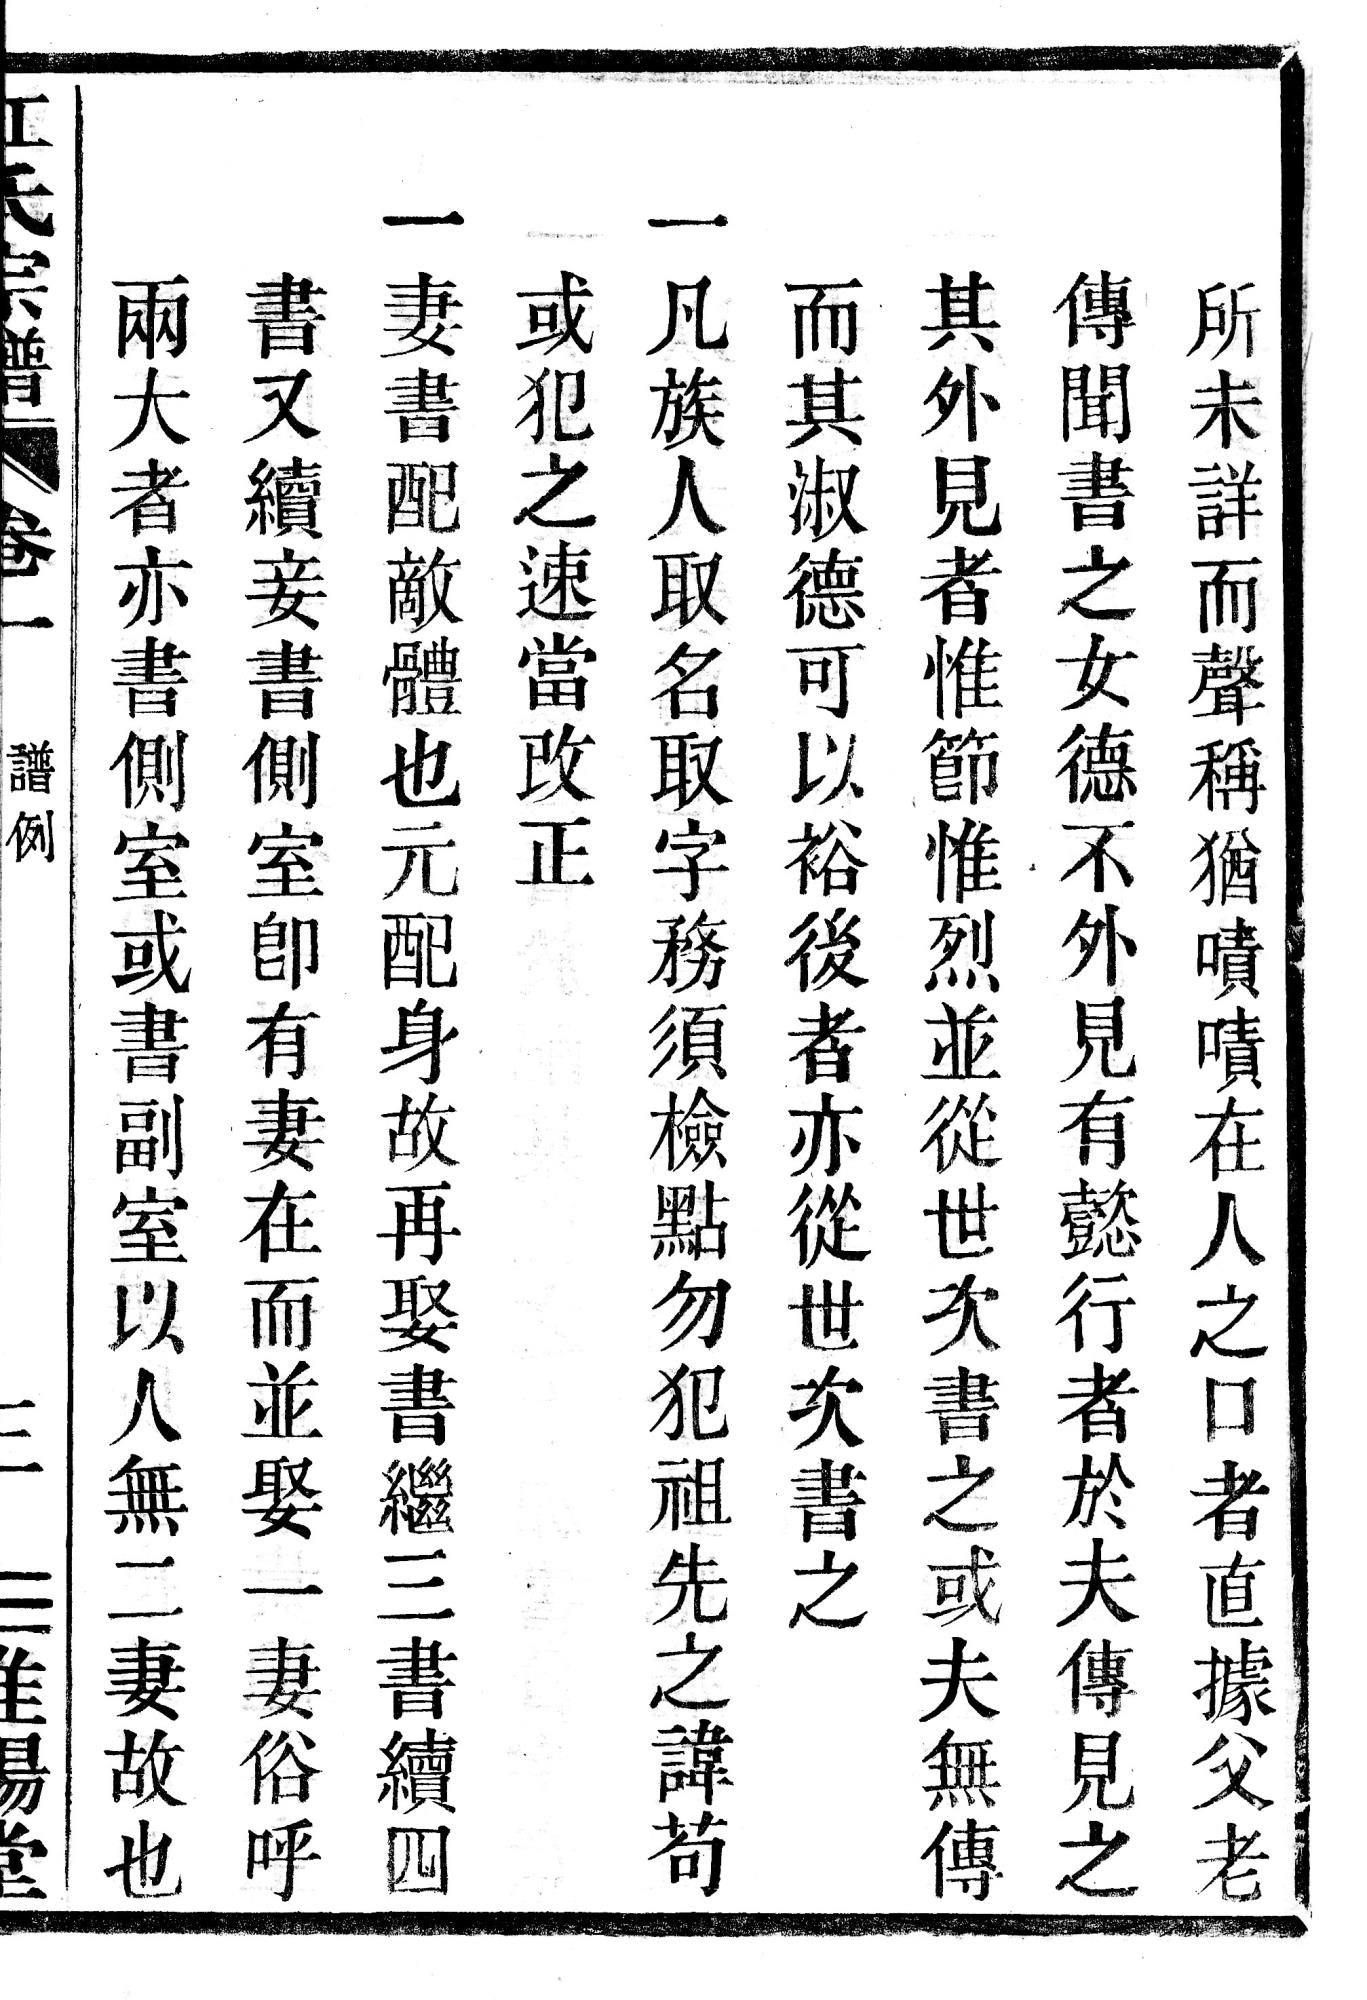 所未詳而聲稱猶嘖嘖在人之口者直據父老
傳聞書之女德不外見有懿行者於夫傳見之
其外見者惟節惟烈並從世次書之或夫無傳
而其淑德可以裕後者亦從世次書之
一凡族人取名取字務須檢點勿犯祖先之諱苟
或犯之速當改正
一妻書配敵體也元配身故再娶書繼三書續四
書又續妾書側室卽有妻在而並娶一妻俗呼
兩大者亦書側室或書副室以人無二妻故也
氏宗譜
卷一
譜例
三
堂